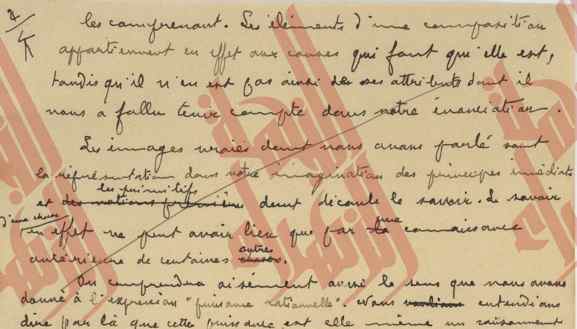 les comprenant. Les éléments d'une composition
appartiennent en effet aux causes qui font qu'elle est,
tandis qu'il n'en est pas ainsi de ses attributs dont il
nous a fallu tenir compte dans notre énonciation.
Les images vraies dont nous avons parlé sont
la représentation dans notre imagination des principes immédiats
les primitifs
et des notions premières dont découle le savoir. Le savoir
d'une chose
en effet ne peut avoir lieu que par une connaissance
autres
antérieure de certaines choses.
On comprendra aisément aussi le sens que nous avons
donné à l'expression "puissance rationnelle". Nous voulions entendions
dire par là que cette puissance est elle même un raisonnement